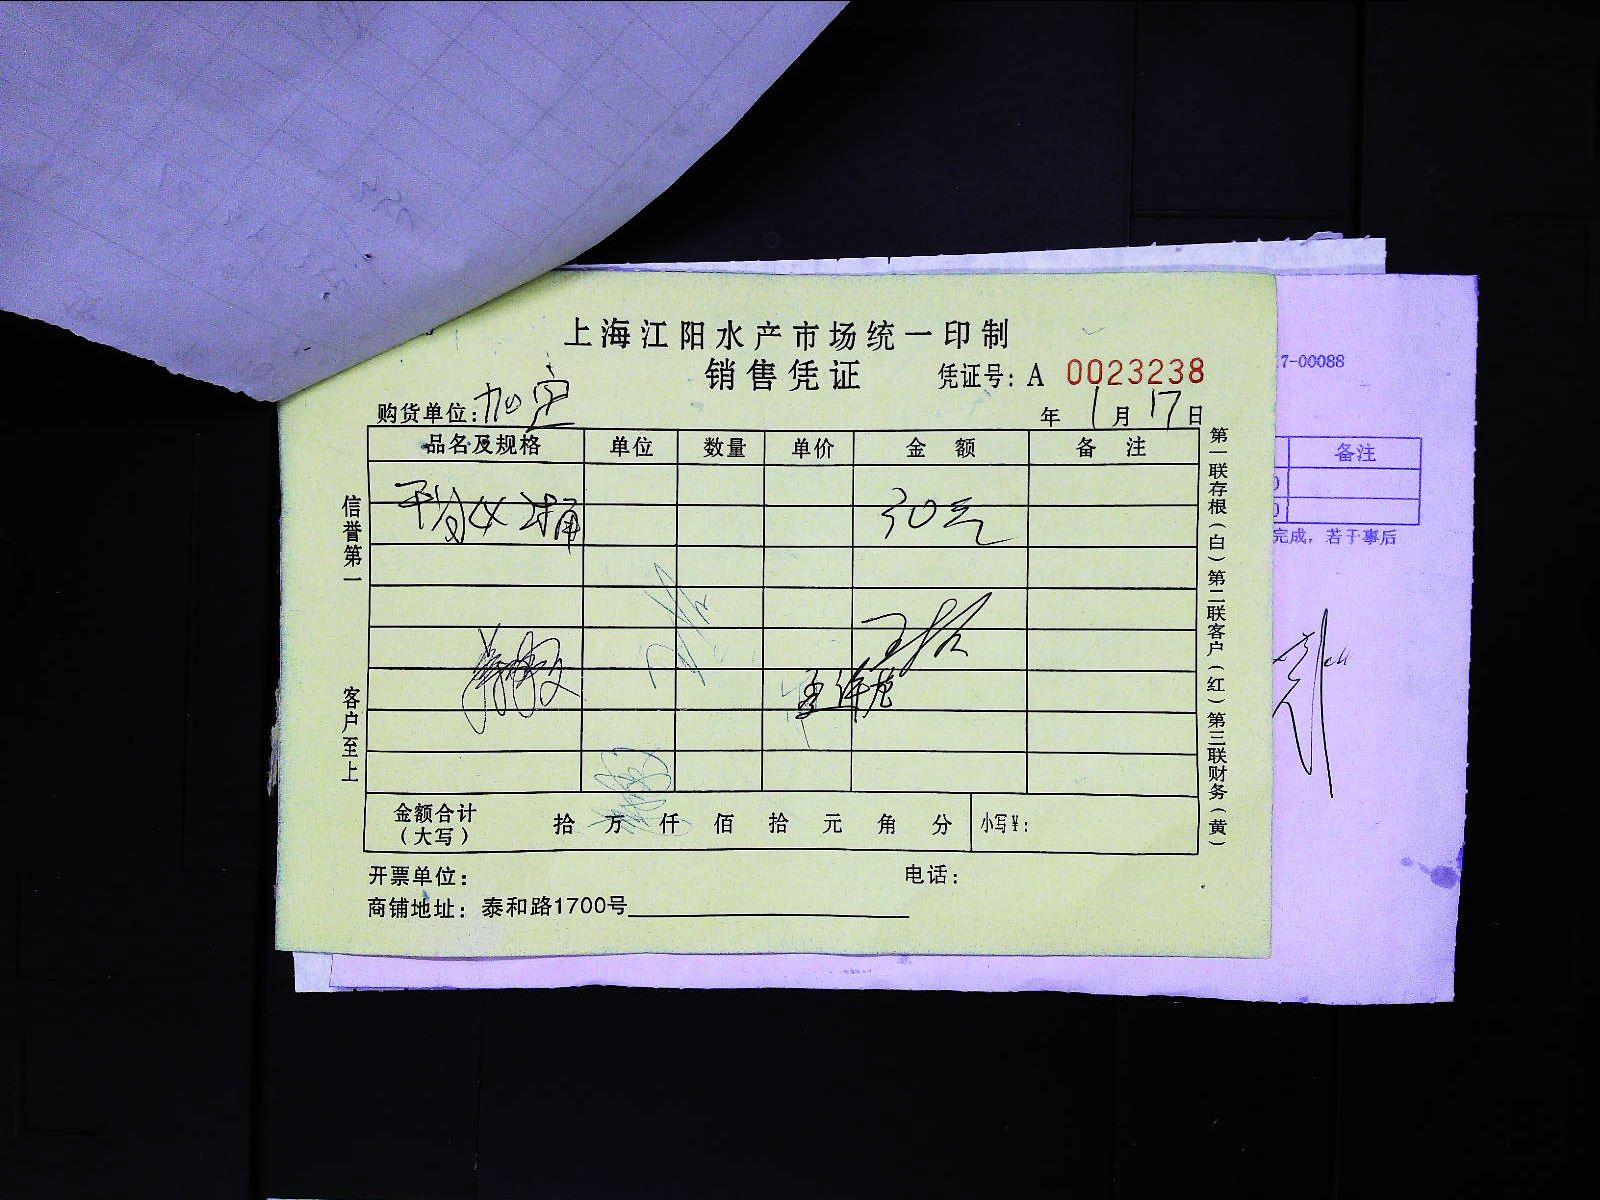 上海江阳水产市场统一印制
销售凭证
凭证号：A 0023238
购货单位：加定
年 1月 17日
品名及规格 单位 数量 单价 金额 备注
30元
金额合计（大写） 拾 万 仟 佰 拾 元 角 分 小写¥：
开票单位： 电话：
商铺地址：泰和路1700号
信誉第一 客户至上
第一联存根（白）第二联客户（红）第三联财务（黄）
7-00088
备注
完成，若于事后